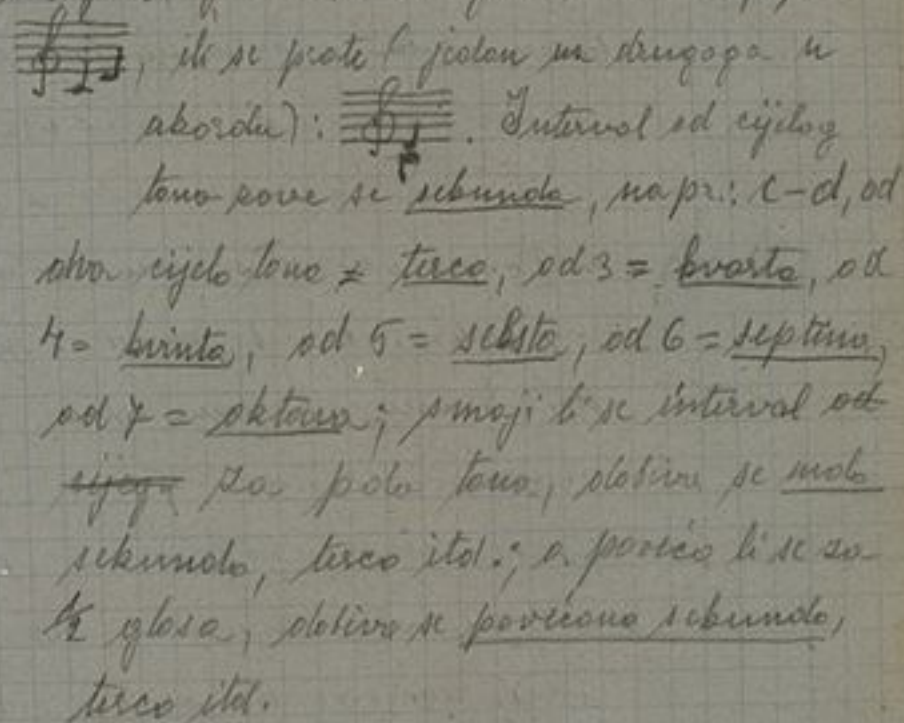 , ili se prate (jedan uz drugoga u
akordu): . Interval od cijelog
tona zove se sekunda, na pr.: c-d, od
dva cijela tona = terca, od 3 = kvarta, od
4 = kvinta, od 5 = seksta, od 6 = septima,
od 7 = oktava; smanji li se interval od
cijega za pola tona, dobiva se mala
sekunda, terca itd.; a poveća li se za
1/2 glasa, dobiva se povećana sekunda,
terca itd.